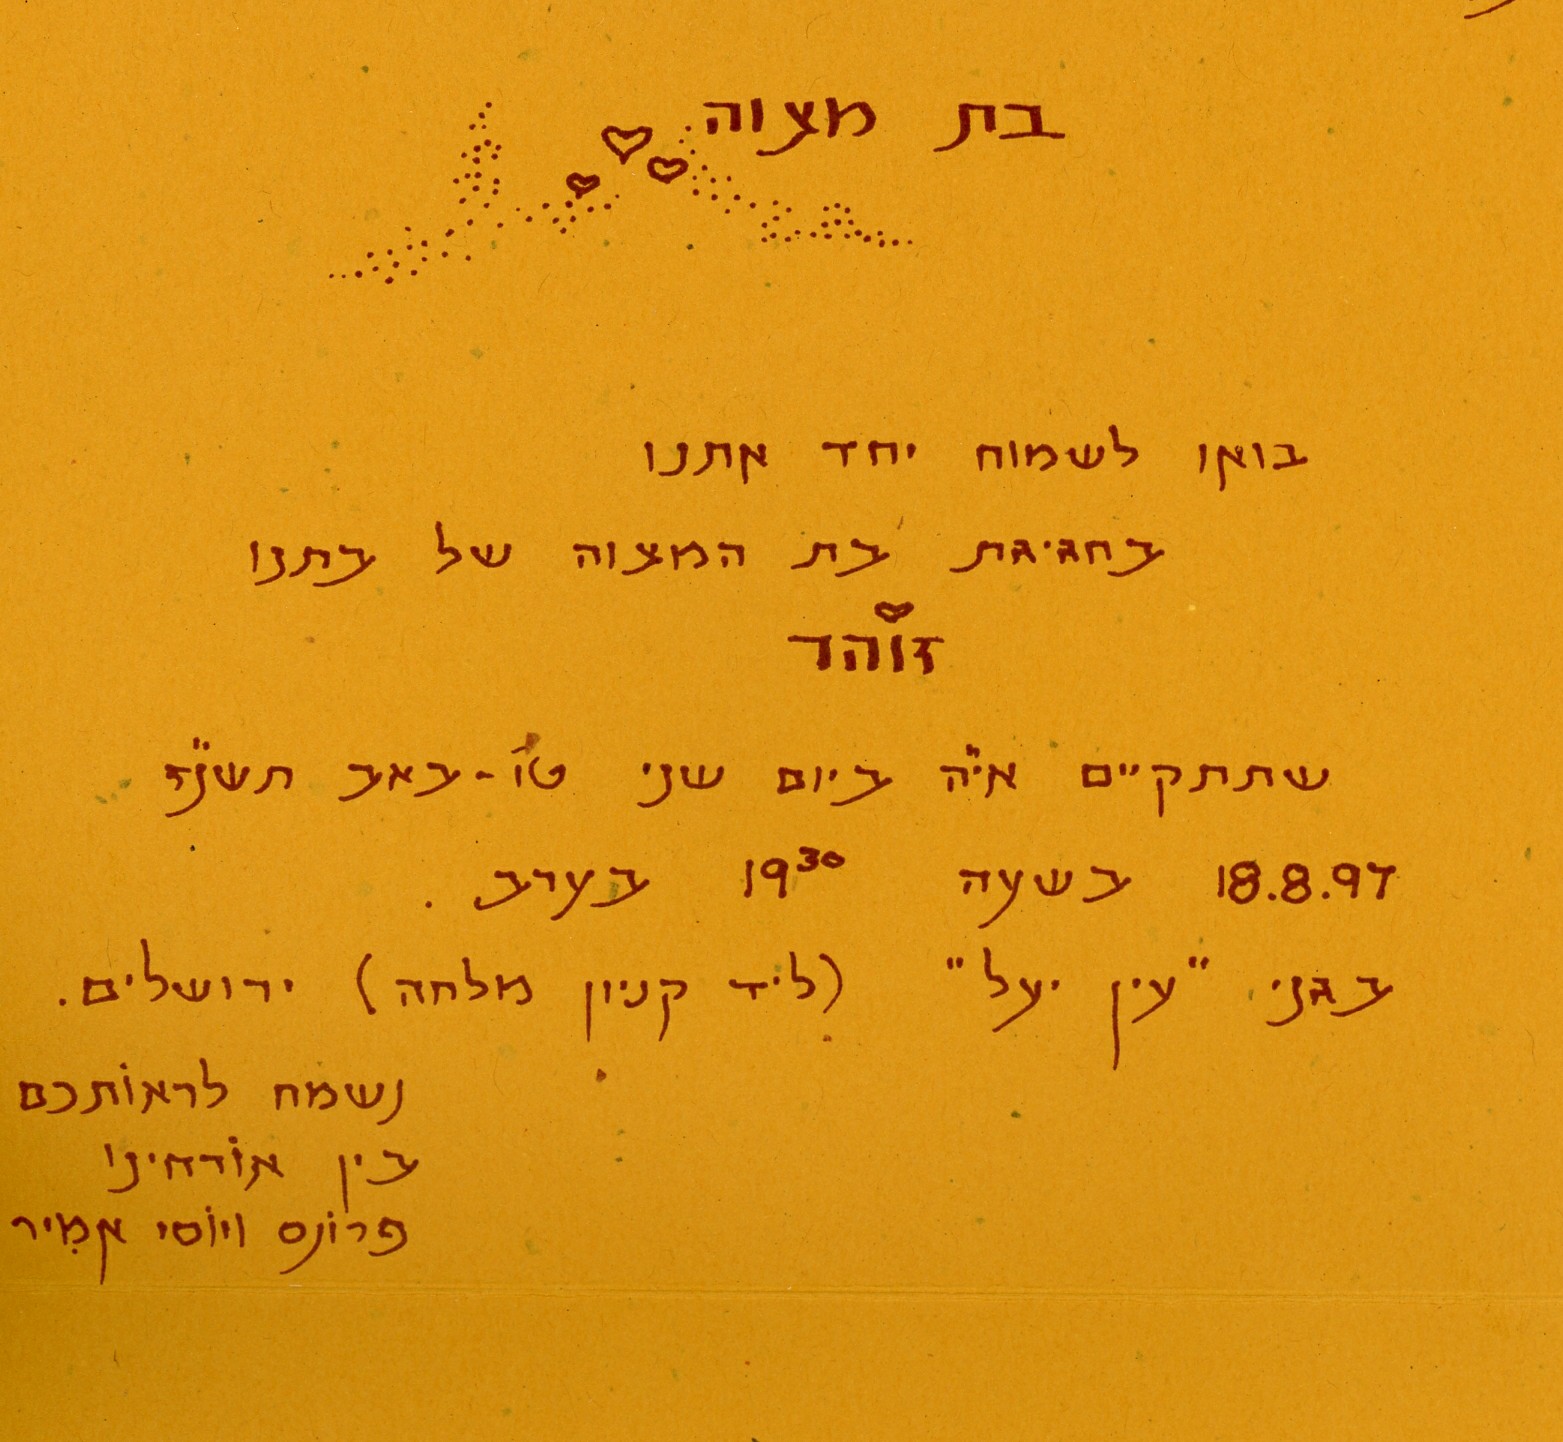 בת מצוה
בואו לשמוח יחד אתנו
בחגיגת בת המצוה של בתנו
זוֹהר
שתתקיים אי"ה ביום שני ט"ו-באב תשנ"ז
18.8.97 בשעה 19³⁰ בערב.
בגני "עין יעל" (ליד קניון מלחה) ירושלים.
נשמח לראוֹתכם
בין אוֹרחינו
פרוֹנס ויוֹסי אמִיר